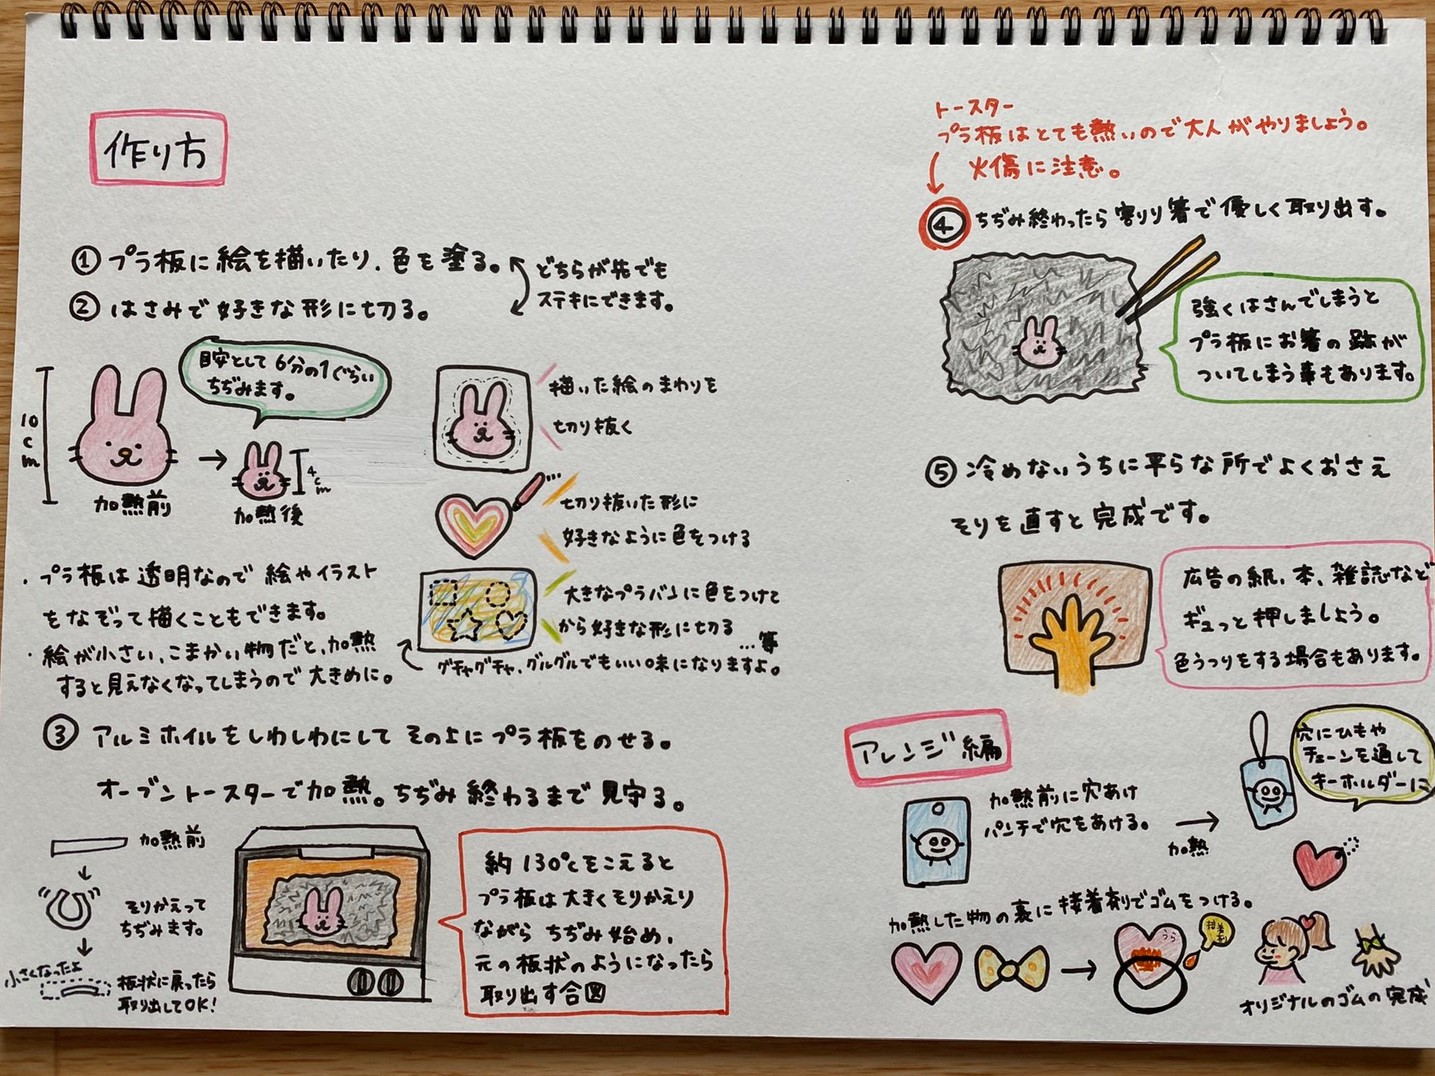 作り方
① プラ板に絵を描いたり、色を塗る。
② はさみで好きな形に切る。
どちらが先でも
ステキにできます。
目安として6分の1ぐらい
ちぢみます。
10cm
加熱前
4cm
加熱後
描いた絵のまわりを
切り抜く
切り抜いた形に
好きなように色をつける
大きなプラバンに色をつけて
から好きな形に切る
…等
グチャグチャ、グルグルでもいい味になりますよ。
・プラ板は透明なので絵やイラスト
をなぞって描くこともできます。
・絵が小さい、こまかい物だと、加熱
すると見えなくなってしまうので大きめに。
③ アルミホイルをしわしわにしてその上にプラ板をのせる。
オーブントースターで加熱。ちぢみ終わるまで見守る。
加熱前
そりかえって
ちぢみます。
小さくなったよ
板状に戻ったら
取り出してOK!
約130℃をこえると
プラ板は大きくそりかえり
ながらちぢみ始め、
元の板状のようになったら
取り出す合図
トースター
プラ板はとても熱いので大人がやりましょう。
火傷に注意。
④ ちぢみ終わったら割りり箸で優しく取り出す。
強くはさんでしまうと
プラ板にお箸の跡が
ついてしまう事もあります。
⑤ 冷めないうちに平らな所でよくおさえ
そりを直すと完成です。
広告の紙、本、雑誌など
ギュっと押しましょう。
色うつりをする場合もあります。
アレンジ編
加熱前に穴あけ
パンチで穴をあける。
加熱
穴にひもや
チェーンを通して
キーホルダーに
加熱した物の裏に接着剤でゴムをつける。
うら
接着剤
オリジナルのゴムの完成